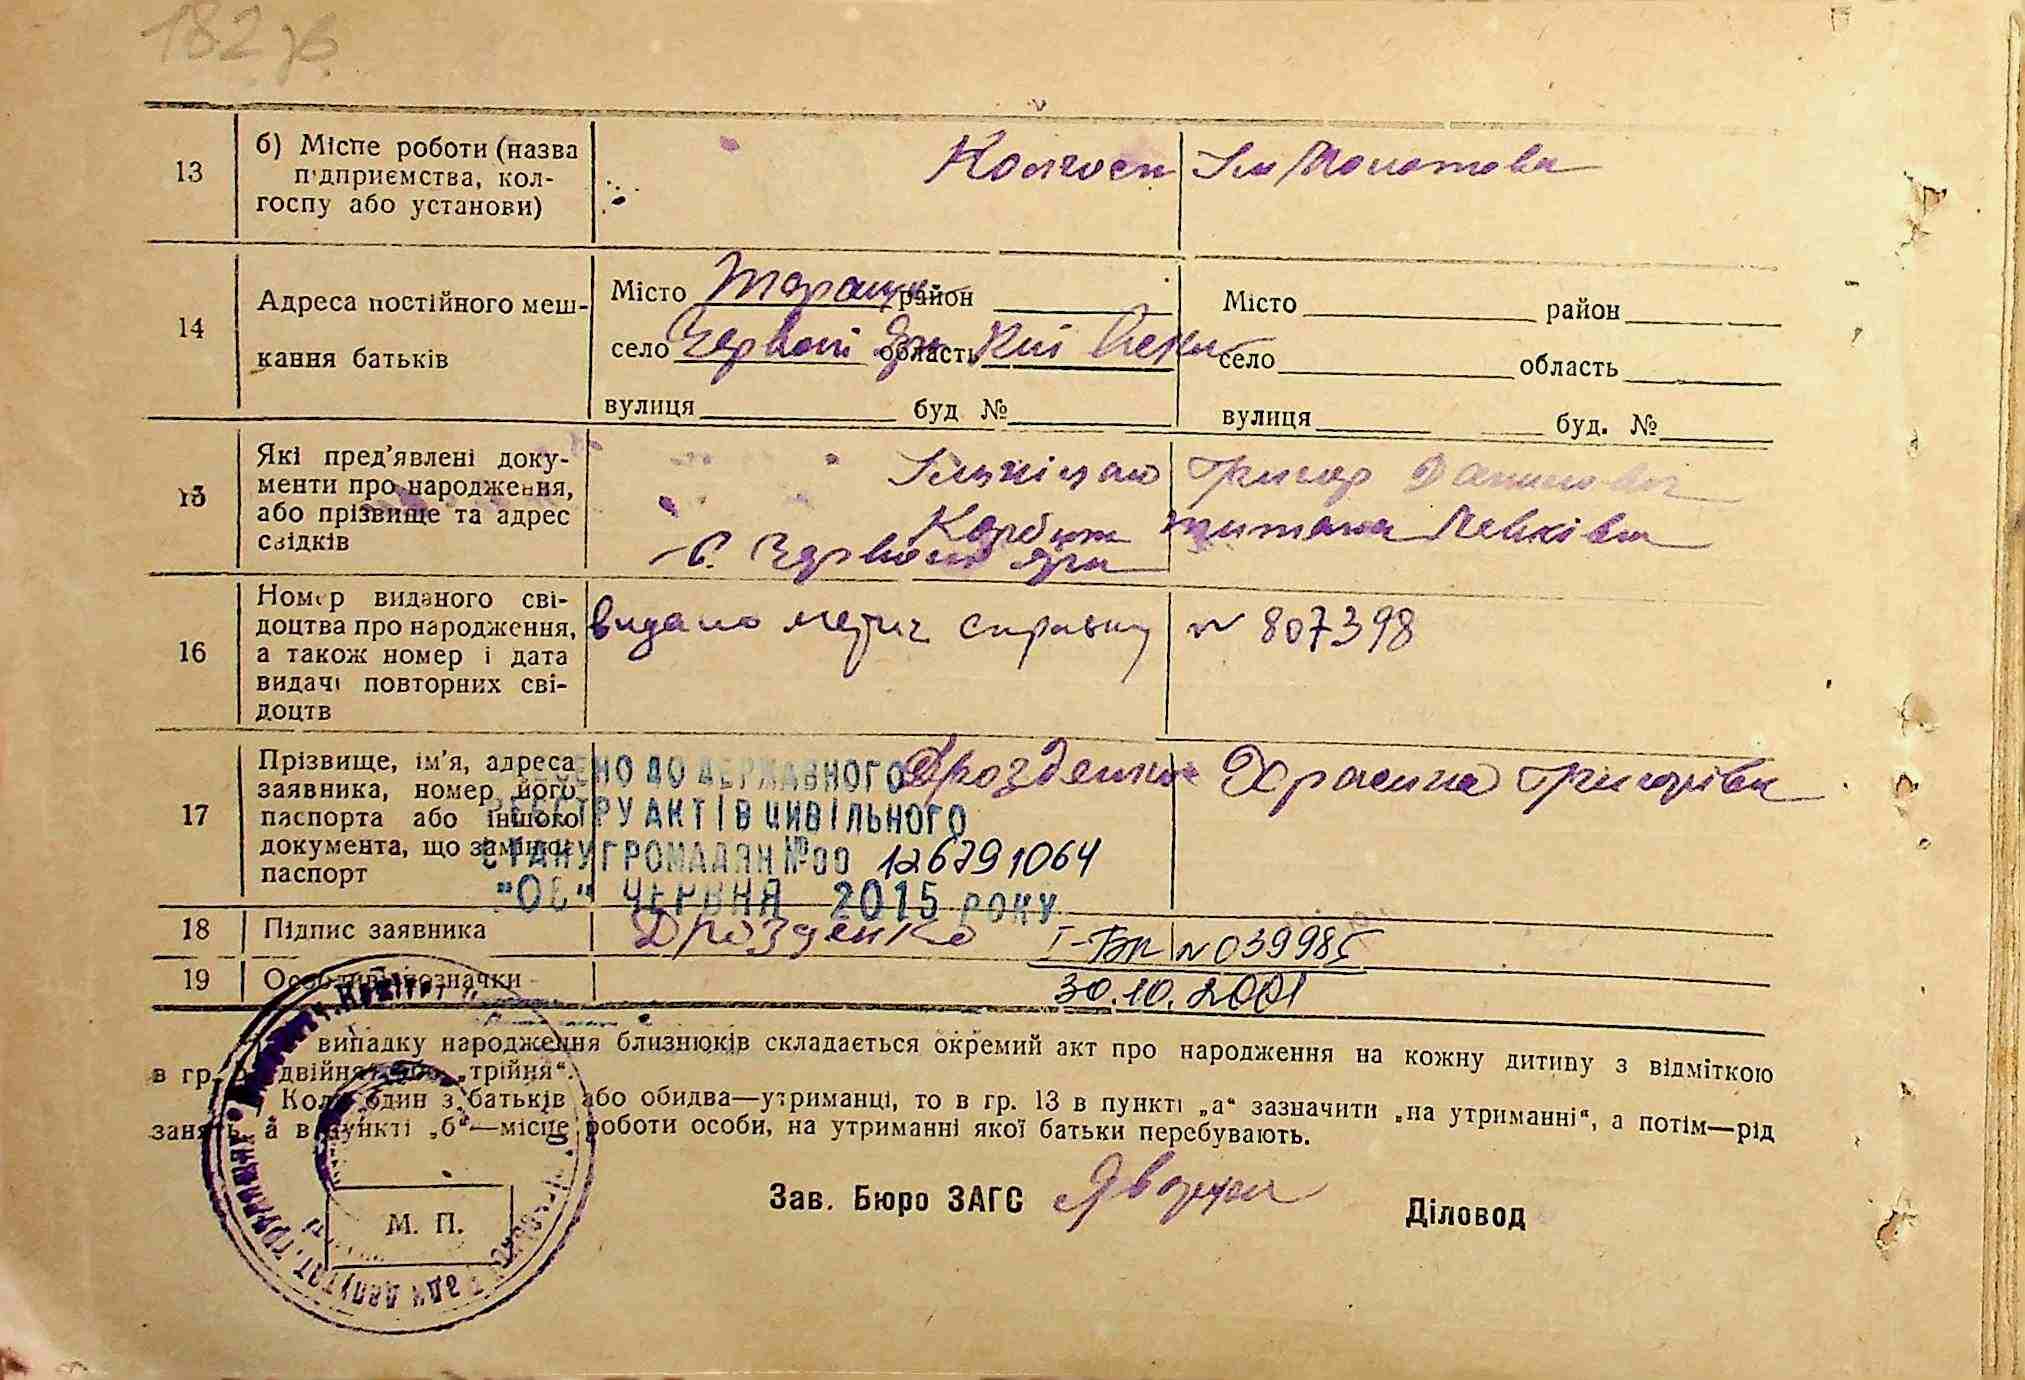 182 зв.
13
б) Місце роботи (назва
підприємства, кол-
госпу або установи)
Колгосп Ім Молотова
14
Адреса постійного меш-
кання батьків
Місто Таращ район
село Червоні область
вулиця буд №
Місто район
село область
вулиця буд. №
15
Які пред'явлені доку-
менти про народження,
або прізвище та адрес
свідків
Григор Данилович
Корбут Левківна
с. Червоні
16
Номер виданого сві-
доцтва про народження,
а також номер і дата
видачі повторних сві-
доцтв
видано метрич справку № 807398
17
Прізвище, ім'я, адреса
заявника, номер його
паспорта або іншого
документа, що замінює
паспорт
Дрозденко Григорівна
ЕНО ДО ДЕРЖАВНОГО
РЕЄСТРУ АКТІВ ЦИВІЛЬНОГО
СТАНУ ГРОМАДЯН №00 126791064
ЧЕРВНЯ 2015 РОКУ
18
Підпис заявника
Дрозденко
І-БК № 039985
19
Особливі позначки
30.10.2001
випадку народження близнюків складається окремий акт про народження на кожну дитину з відміткою
в гр. двійня „трійня“.
Коли один з батьків або обидва—утриманці, то в гр. 13 в пункті „а“ зазначити „на утриманні“, а потім—рід
занять, а в пункті „б“—місце роботи особи, на утриманні якої батьки перебувають.
Зав. Бюро ЗАГС
Діловод
М. П.